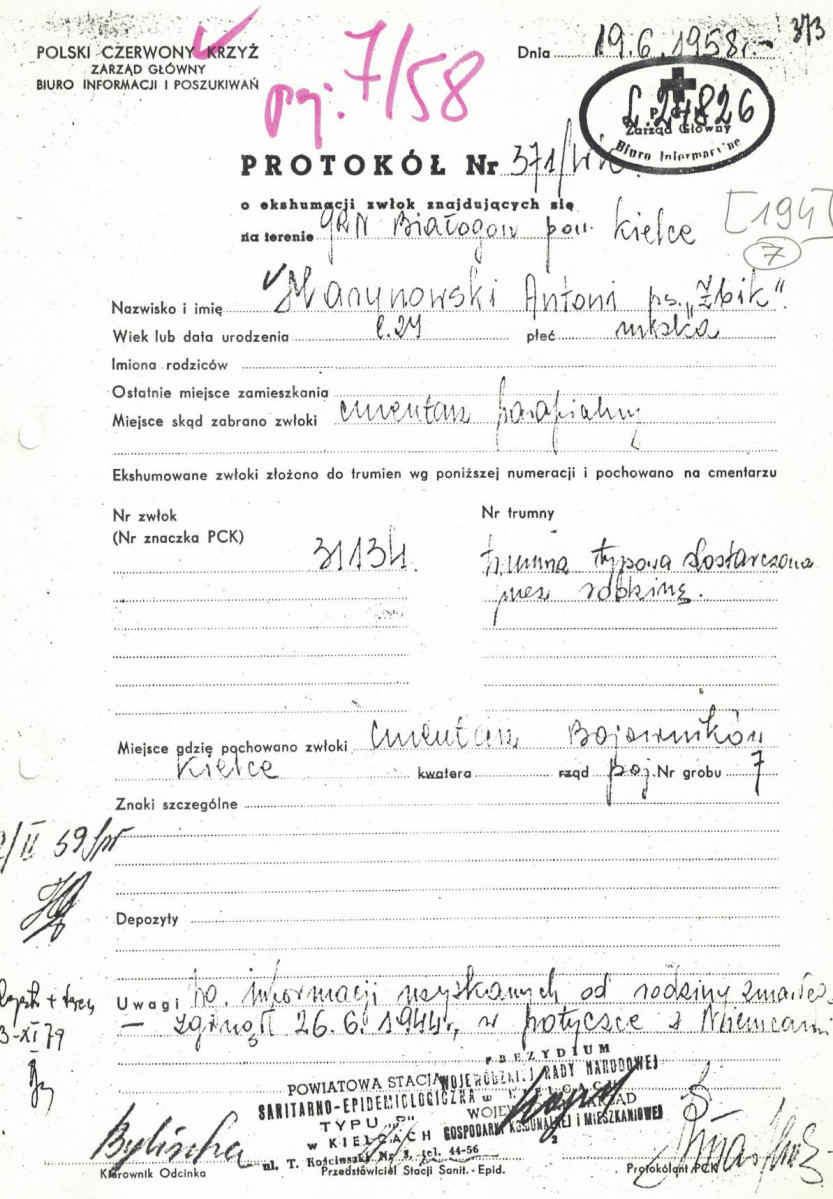 373
POLSKI CZERWONY KRZYŻ
ZARZĄD GŁÓWNY
BIURO INFORMACJI I POSZUKIWAŃ
poj. 7/58
Dnia 19.6.1958r.-
Ł.24826
P C K
Zarząd Główny
Biuro Informacyjne
PROTOKÓŁ Nr 371/
o ekshumacji zwłok znajdujących się
na terenie GRN Białogon pow. Kielce
[194]
7
Nazwisko i imię Marynowski Antoni ps. „Żbik"
Wiek lub data urodzenia l.24 płeć męska
Imiona rodziców
Ostatnie miejsce zamieszkania
Miejsce skąd zabrano zwłoki cmentarz parafialny
Ekshumowane zwłoki złożono do trumien wg poniższej numeracji i pochowano na cmentarzu
Nr zwłok
(Nr znaczka PCK)
Nr trumny
trumna typowa dostarczona
przez rodzinę.
Miejsce gdzie pochowano zwłoki cmentarz Bojowników
Kielce kwatera rząd poj. Nr grobu 7
Znaki szczególne
Depozyty
Uwagi wg. informacji uzyskanych od rodziny
- zginął 26.6.1944r, w potyczce z Niemcami
PREZYDIUM
WOJEWÓDZKIEJ RADY NARODOWEJ
w KIELCACH
GOSPODARKI KOMUNALNEJ i MIESZKANIOWEJ
2
POWIATOWA STACJA
SANITARNO-EPIDEMIOLOGICZNA
TYPU
w KIELCACH
ul. T. Kościuszki tel. 44-56
Kierownik Odcinka
Przedstawiciel Stacji Sanit.-Epid.
Protokólant PCK